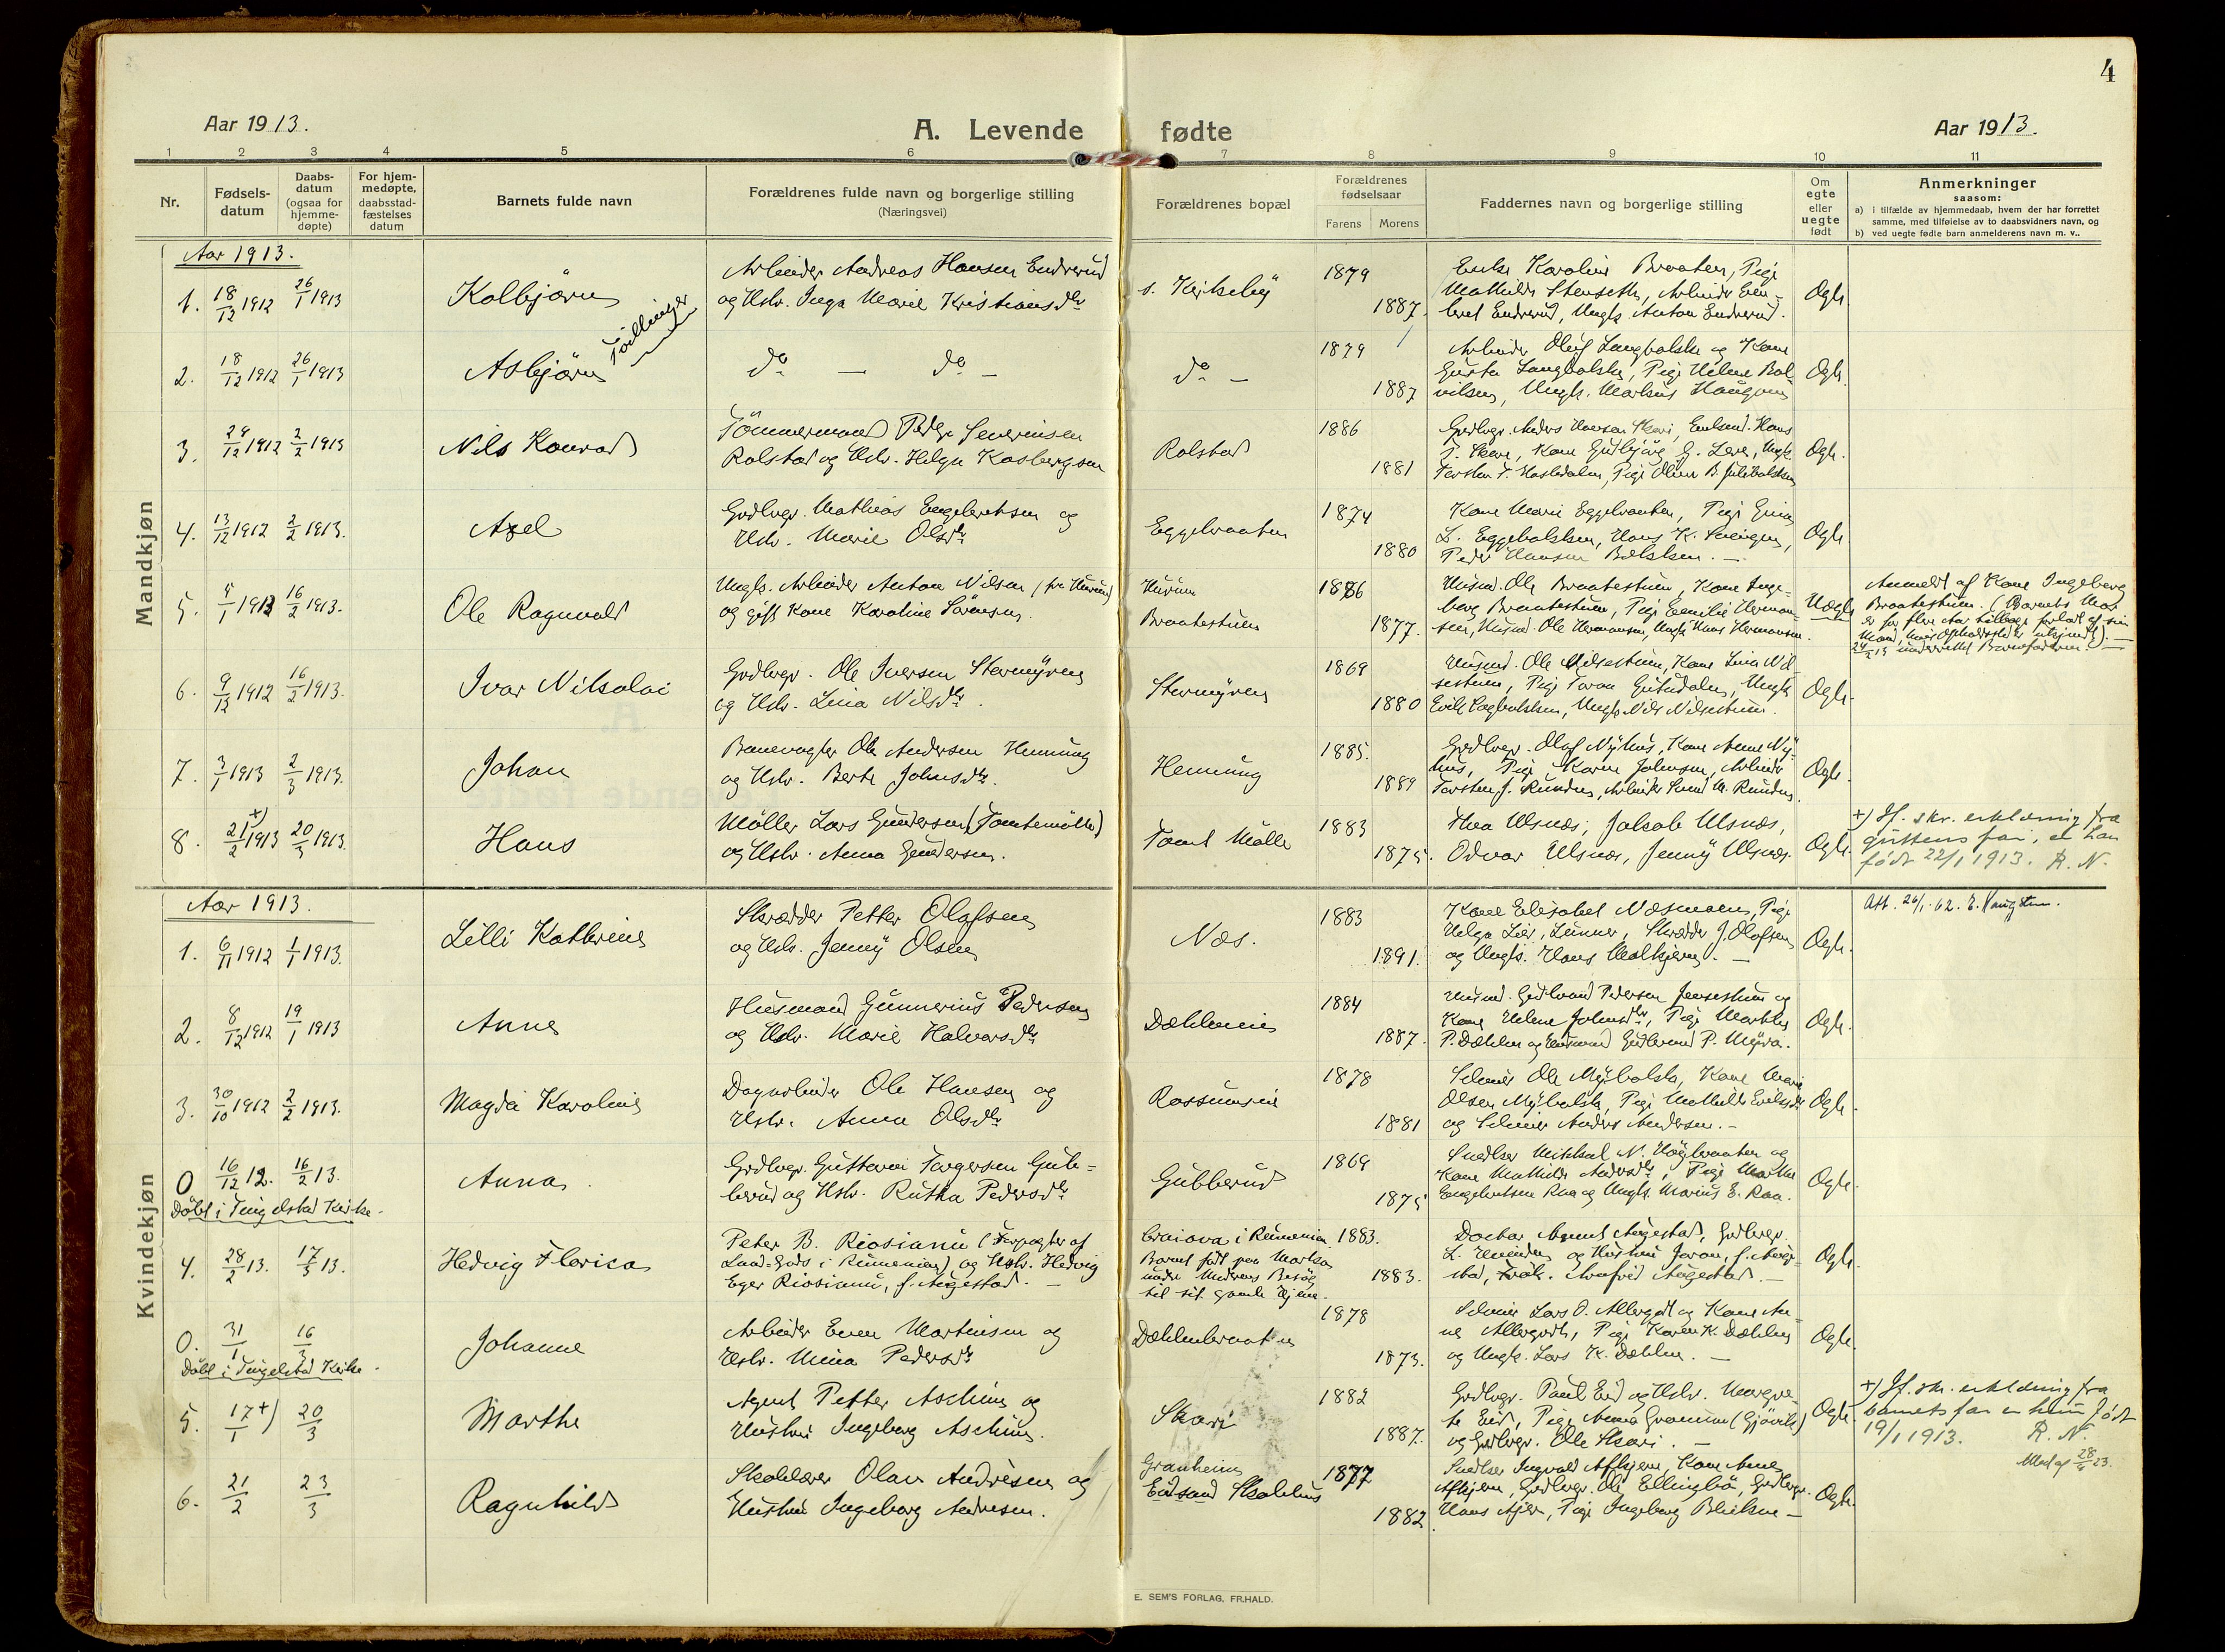 4
Aar 1913.
A. Levende fødte
Aar 1913.
1 2 3 4 5 6 7 8 9 10 11
Nr.
Fødsels-
datum
Daabs-
datum
(ogsaa for
hjemme-
døpte)
For hjem-
medøpte,
daabsstad-
fæstelses
datum
Barnets fulde navn
Forældrenes fulde navn og borgerlige stilling
(Næringsvei)
Forældrenes bopæl
Forældrenes
fødselsaar
Farens Morens
Faddernes navn og borgerlige stilling
Om
egte
eller
uegte
født
Anmerkninger
saasom:
a) i tilfælde av hjemmedaab, hvem der har forrettet
samme, med tilføielse av to daabsvidners navn, og
b) ved uegte fødte barn anmelderens navn m. v..
Mandkjøn
Aar 1913.
1. 18/12 1912 26/1 1913
Kolbjørn
Tvillinger
Arbeider Andreas Hansen Endrerud
og Hstr. Inga Marie Kristiansdtr
s. Kirkeby
1879
1887.
Enke Karoline Braaten, Pige
Mathilde Stenseth, Arbeider Even-
Endrerud, Ungk. Anton Endrerud.
Ogte.
2. 18/12 1912 26/1 1913
Asbjørn
do — do —
do —
1879
1887
Arbeider Oluf Langbakke og Kone
Langbakke, Pige Helene
Ungk. Markus
Ogte.
3. 29/12 1912 2/2 1913
Nils Konrad
Tömmermand Peder Severinsen
Rolstad og Hstr. Helga Kasbergsen
Rolstad
1886
1881
Grdbrgr. Anders Hansen Skari, Hans
Ogte.
4. 13/12 1912 2/2 1913.
Axel
Grdbrgr. Mathias Engebretsen og
Hstr. Marie Olsdtr
Eggebraaten
1874
1880
Kone Marie Eggebraaten, Pige
L. Eggebakken, Hans K.
Peder Hansen
Ogte.
5. 1/1 1913 16/2 1913.
Ole Ragnvald
Ungk. Arbeider Anton Nilsen (fra Hurum)
og gift Kone Karoline Sörensen.
Hurum
Braatestuen
1876
1877.
Husmd. Ole Braatestuen, Kone Inge-
borg Braatestuen, Pige Emilie Herman-
sen, Husmd. Ole Hermansen, Ungk. Hans Hermansen.
Uægte
Anmeldt af Kone Ingeborg
Braatestuen. (Barnets Mor
er for flere Aar tilbage forladt af sin
Mand, hvis Opholdssted er ubekjendt). —
24/2 13 underrettet Barnefaderen. —
6. 9/12 1912 16/2 1913.
Ivar Nikolai
Grdbrgr. Ole Iversen Stermyren
og Hstr. Lina Nilsdtr.
Stermyren
1869
1880
Husmd. Ole Nilsestuen, Kone Lina Nil-
sestuen, Pige Ungk.
Ungk. Nils Nilsestuen.
Ogte.
7. 3/1 1913 2/3 1913.
Johan
Banevogter Ole Andersen Henning
og Hstr. Berte Johnsdtr.
Henning
1885.
1889
Grdbrgr. Olaf Nyhus, Kone Anne Ny-
hus, Pige Karen Johnsen, Arbeider
Torsten J. Runden, Arbeider M. Runden.
Ogte.
8. 21/2 1913 +) 20/3 1913.
Hans
Möller Lars Gundersen (Tomtemölle)
og Hstr. Anna Gundersen.
Tomt Mölle
1883
1875.
Thea Ulsnes, Jakob Ulsnes,
Odvar Ulsnes, Jenny Ulsnes.
Ogte.
+) Jf. skr. erklæring fra
guttens far, er han
født 22/1 1913. R. N.
Kvindekjøn
Aar 1913.
1. 6/11 1912 1/1 1913.
Lilli Kathrine
Skrædder Petter Olafsen
og Hstr. Jenny Olsen
Næs.
1883
1891.
Kone Elisabet Næsmoen, Pige
Helga Lier, Lunner, Skrædder J. Olafsen
og Ungk. Hans Molkjern. —
Ogte.
Att. 26/1-62.
2. 8/12 1912 19/1 1913
Anne
Husmand Gunnerius Pedersen
og Hstr. Marie Halvorsdtr
Dæhleneie
1884
1887.
Husmd. Gudbrand Pedersen Jensestuen og
Kone Helene Johnsdtr, Pige Marthe
P. Dæhlen og Husmand Gudbrand P. Myra.
Ogte.
3. 30/10 1912 2/2 1913.
Magda Karoline
Dagarbeider Ole Hansen og
Hstr. Anna Olsdtr
Rossumseie
1878
1881
Selveier Ole Mybakke, Kone Marie
Olsen Mybakke, Pige Mathilde
og Selveier Anders Andersen. —
Ogte.
0 16/12 12. 16/2 13.
Döbt i Tingelstad Kirke.
Anna
Grdbrgr. Guttorm Torgersen Gub-
berud og Hstr. Rutha Pedersdtr
Gubberud
1869
1875
Snedker Mikkel N. Høgbraaten og
Kone Mathilde Andersdtr, Pige Marthe
Engebretsen Raa og Ungk. Marius E. Raa.
Ogte.
4. 28/2 13. 17/3 13.
Hedvig Florica
Peter B. Riosianu (Forpagter af
Land-Gods i Rumenien) og Hstr. Hedvig
Eger Riosianu, f. Augestad. —
Craiova i Rumenien
Barnet født paa
under Moderens Besög
til sit gamle Hjem.
1883.
1883.
Doctor Augestad, Grdbrgr.
L. og Hustru f. Auge-
stad, Frök. Augestad. —
Ogte.
0. 31/1 16/3
Döbt i Tingelstad Kirke.
Johanne
Arbeider Even Martinsen og
Hstr. Mina Pedersdtr
Dæhlenbraaten
1878
1873.
Selveier Lars O. Allergodt og Kone An-
ne Allergodt, Pige Karen K. Dæhlen
og Ungk. Lars K. Dæhlen. —
Ogte.
5. 17/1 +) 20/3
Marthe
Agent Petter Aschim og
Hustru Ingeborg Aschim.
Skari
1882
1887.
Grdbrgr. Paul Eid og Hstr. Margre-
te Eid, Pige Anna (Gjövik)
og Grdbrgr. Ole Skari. —
Ogte.
+) Jf. skr. erklæring fra
barnets far er hun født
19/1 1913. R. N.
28/6 23.
6. 21/2 23/3
Ragnhild
Skolelærer Olav Andresen og
Hustru Ingeborg Andresen.
Granheim
Eidsand Skolehus
1877
1882.
Snedker Ingvald Askjem, Kone Anne
Askjem, Grdbrgr. Ole Ellingbö, Grdbrgr.
Hans Pige Ingeborg —
Ogte.
E. SEM'S FORLAG, FR.HALD.